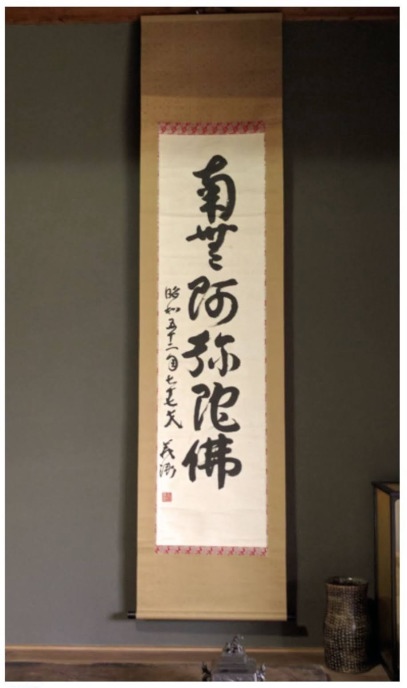 南無阿弥陀佛
昭和五十二年七十七才 義